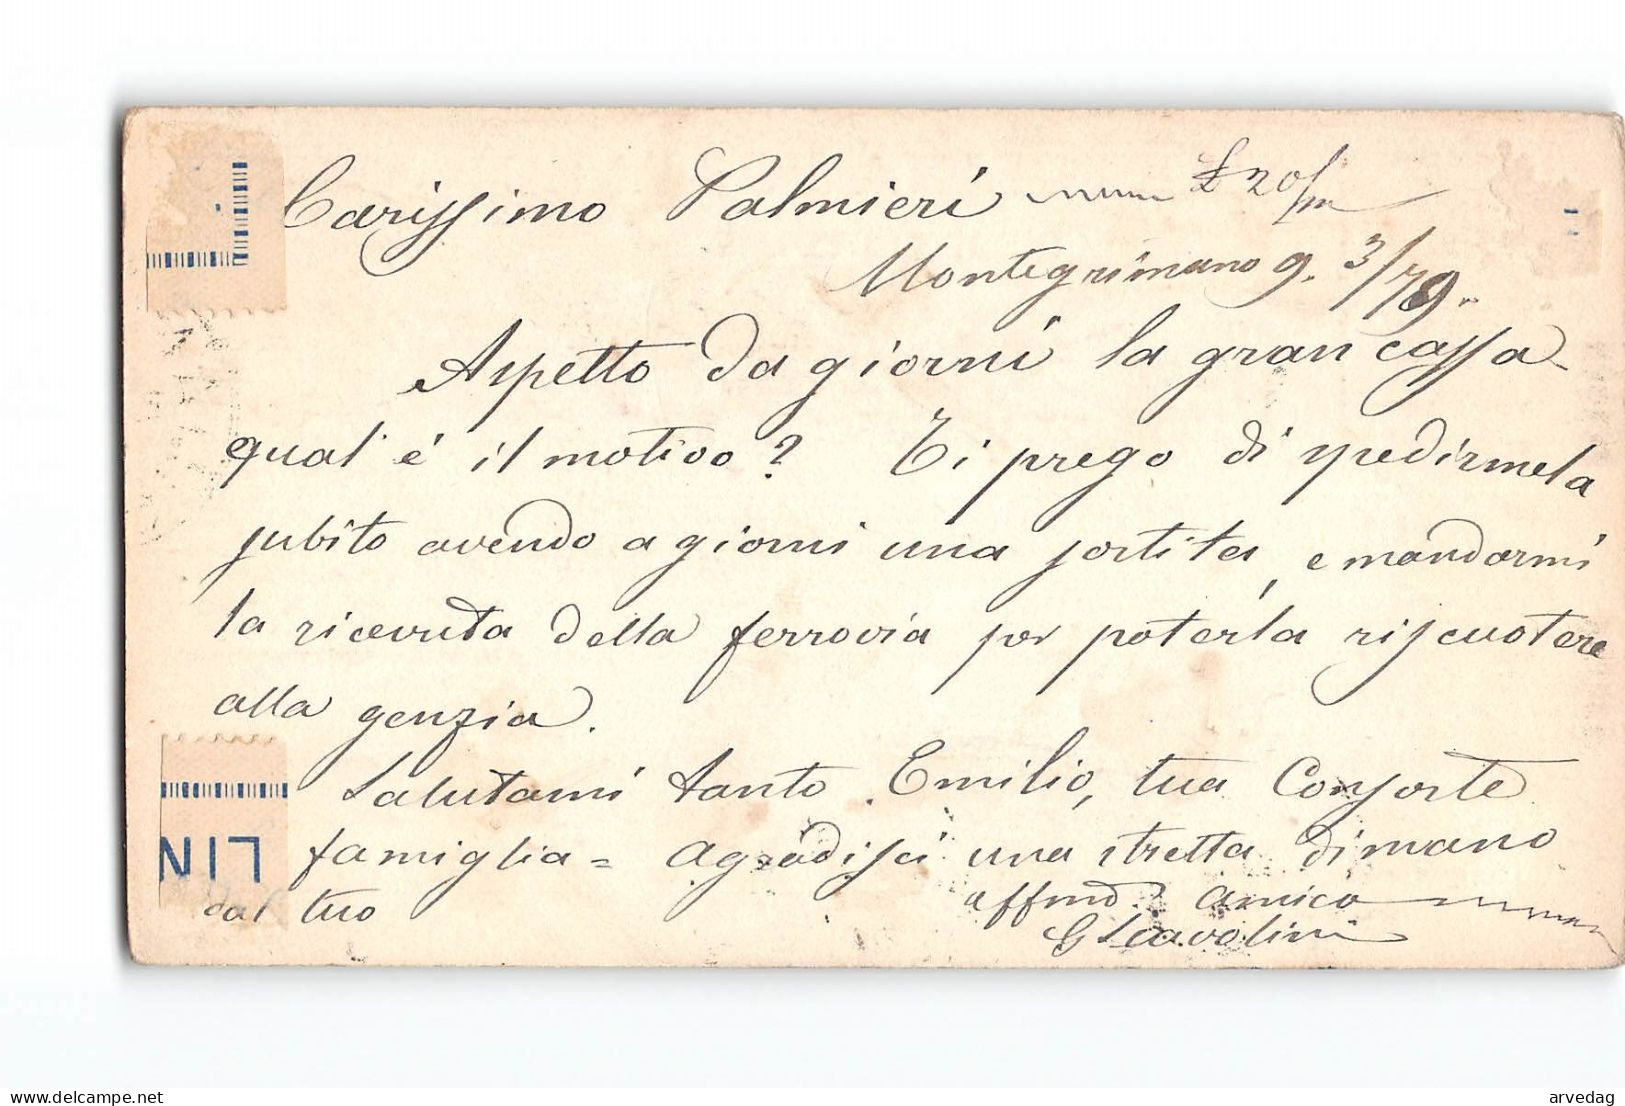 Carissimo Palmieri £ 20/m
Montegrimano 9. 3/79.
Aspetto da giorni la gran cassa
qual' è il motivo? Ti prego di spedirmela
subito avendo a giorni una sortita, e mandarmi
la ricevuta della ferrovia per poterla riscuotere
alla genzia.
Salutami tanto Emilio, tua Consorte
famiglia = Agradisci una stretta di mano
LIN
dal tuo affmo. amico
G Scavolini
delcampe.net
arvedag